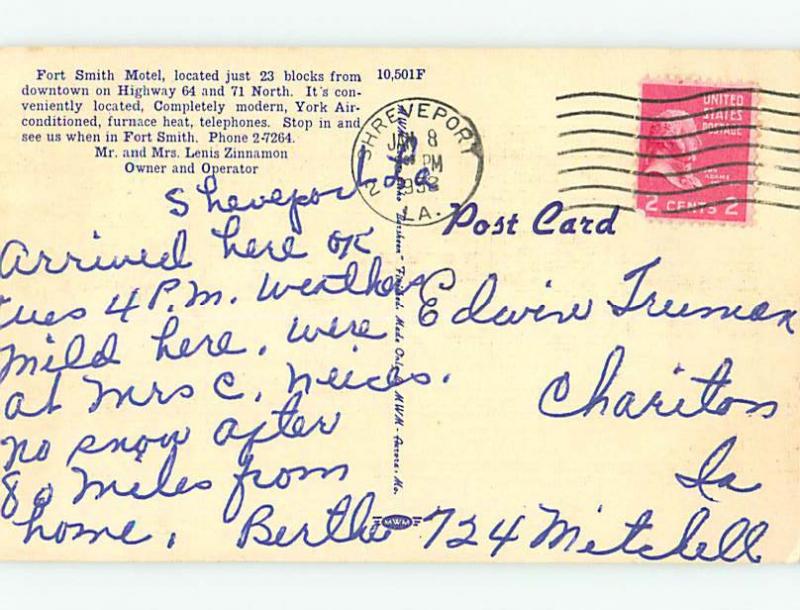 Fort Smith Motel, located just 23 blocks from
downtown on Highway 64 and 71 North. It's con-
veniently located, Completely modern, York Air-
conditioned, furnace heat, telephones. Stop in and
see us when in Fort Smith. Phone 2-7264.
Mr. and Mrs. Lenis Zinnamon
Owner and Operator
10,501F
SHREVEPORT
JAN 8
PM
LA.
2
UNITED
STATES
POSTAGE
ADAMS
2 CENTS 2
Post Card
Sheveport La
Arrived here OK
tues 4 P.M. Weather
mild here. were
at Mrs C. Neices.
no snow after
80 miles from
home. Bertha
Edwin Truman
Chariton
Ia
724 Mitchell
"Finished. Made Only By MWM - Aurora, Mo.
MWM